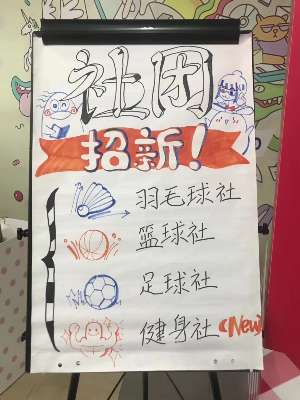 社团
招新！
羽毛球社
篮球社
足球社
健身社 (New)